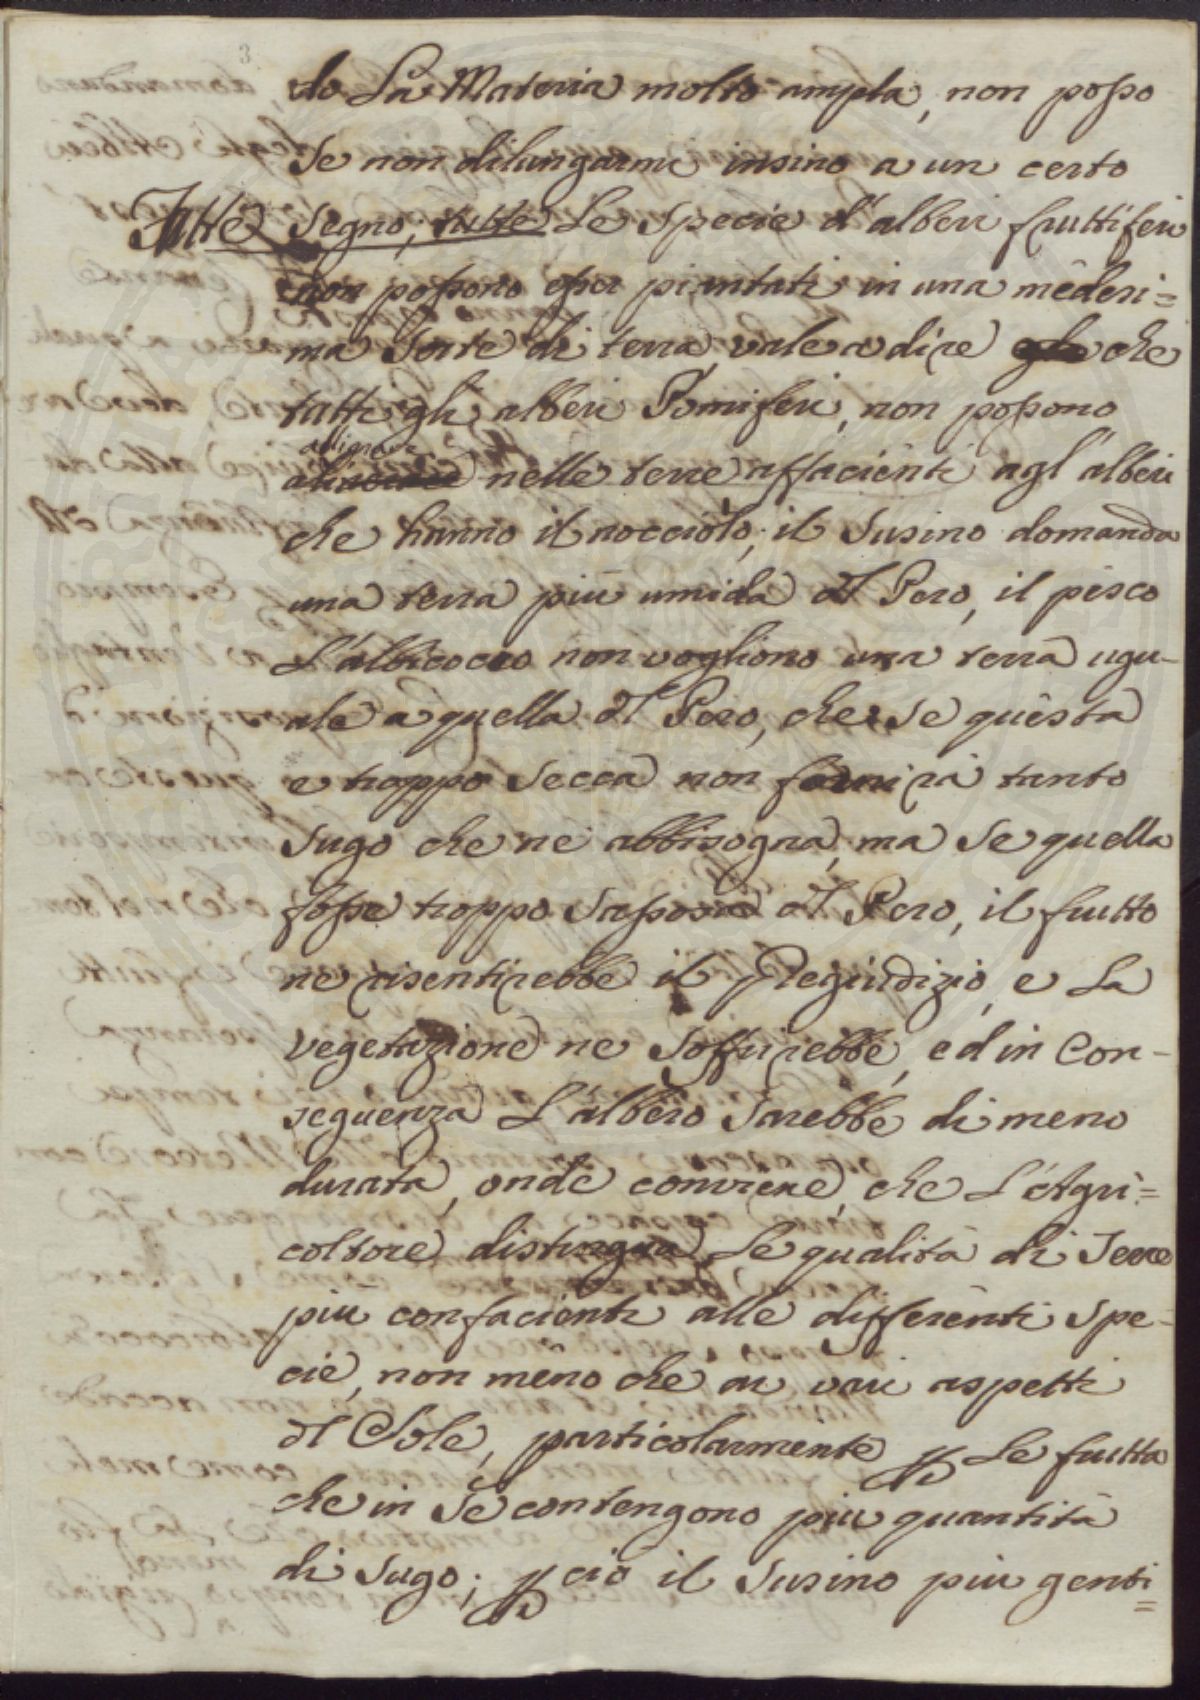 3
do La Materia molto ampla, non posso
se non dilungarmi insino a un certo
Tutte segno, tutte Le specie d'alberi fruttiferi
non possono esser piantati in una medesi=
ma sorte di terra, vale a dire che
tutti gli alberi Pomiferi, non possono
allignare
nelle terre affacienti agl'alberi
che hanno il nocciolo, il Susino domanda
una terra più umida dl Pero, il pesco
L'albicocco non vogliono una terra ugu-
ale a quella dl Pero, che se questa
e troppo secca non fornirà tanto
sugo che ne abbisogna, ma se quella
fosse troppo sassosa dl Pero, il frutto
ne risentirebbe il Pregiudizio, e La
vegetazione ne soffrirebbe, ed in Con-
seguenza L'albero sarebbe di meno
durata, onde conviene, che L'Agri=
coltore distingua Le qualità di Terre
più confacienti alle differenti spe-
cie, non meno che ai vari aspetti
dl Sole, particolarmente p Le frutta
che in se contengono più quantità
di sugo; p ciò il Susino più genti=